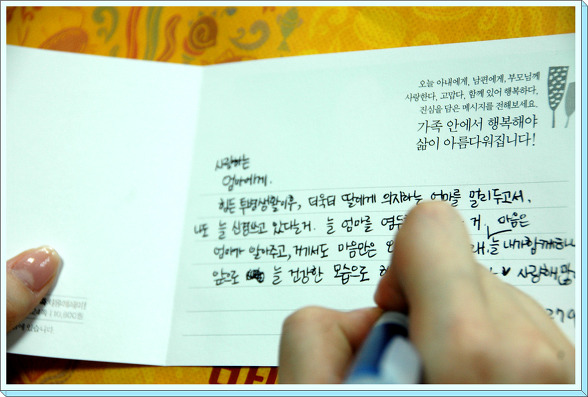 오늘 아내에게, 남편에게, 부모님께
사랑한다, 고맙다, 함께 있어 행복하다,
진심을 담은 메시지를 전해보세요.
가족 안에서 행복해야
삶이 아름다워집니다!
사랑하는
엄마에게.
힘든 투병생활이후, 더욱더 딸에게 의지하는 엄마를 멀리두고서,
나도 늘 신경쓰고 있다는거. 늘 엄마를 염두 거 마음은
엄마가 알아주고, 거기서도 마음만은 늘 내가함께하니
앞으로 늘 건강한 모습으로 ♥ 사랑해
279
10,800원
있습니다